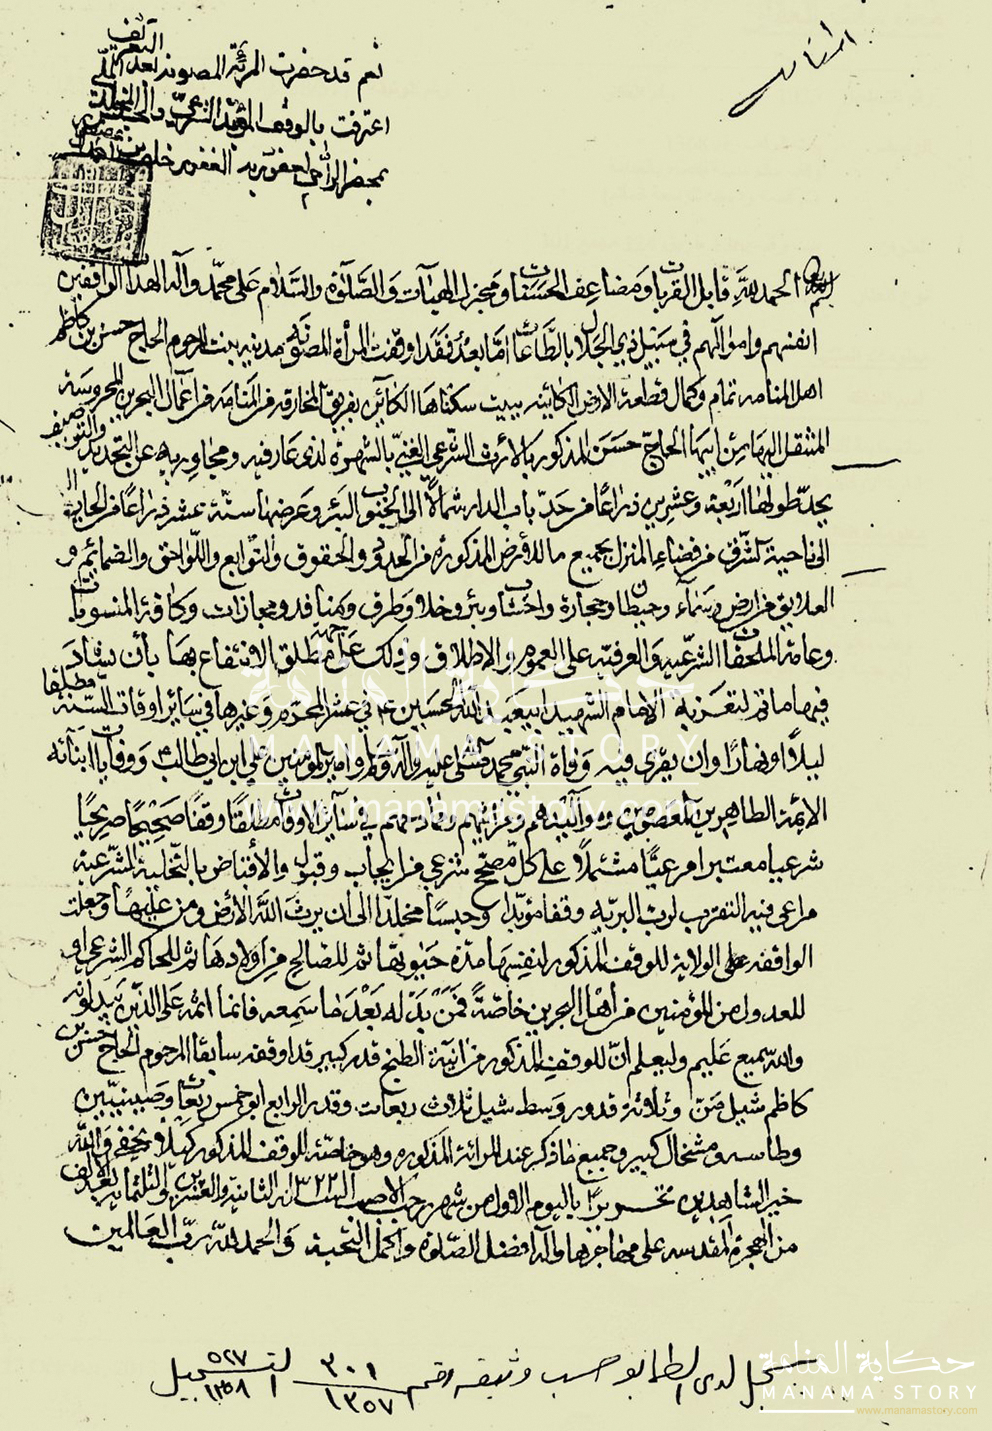 نعم قد حضرت المرئة المصونه لهذا
اعترفت بالوقف المؤبد الشرعي والحبس المخلد
بمحضر الراجي لعفو ربه الغفور خلف بن أحمد
بسم الله الحمد لله قابل القربات ومضاعف الحسنات ومجزل الهبات والصلوة والسلام على محمد وآله الهداة الواقفين
انفسهم واموالهم في سبيل ذي الجلال بالطاعات اما بعد فقد اوقفت المرأة المصونه مدينه بنت المرحوم الحاج حسن بن كاظم
اهل المنامه تمام وكمال قطعة الارض الكائنه ببيت سكناها الكائن بفريق المخارقه من المنامه من اعمال البحرين المحروسة
المنتقل اليها من ابيها الحاج حسن المذكور بالارث الشرعي الغني بالشهرة لدى عارفيه ومجاوريه عن التحديد والتوصيف
بحد طولها اربعة وعشرين ذراعا من حد باب الدار شمالا الى الجنوب البئر وعرضها ستة عشر ذراعا من
الى ناحية الشرق من فضاء المنزل بجميع ما للارض المذكوره من الحدود والحقوق والتوابع واللواحق والضمائم و
العلايق من ارض وسماء وحيطان وحجارة واخشاب وبئر وخلا وطرق ومنافذ ومجازات وكافة المنسوبات
وعامة الملحقات الشرعيه والعرفيه على العموم والاطلاق وذلك على جهة مطلق الانتفاع بها بأن يشاد
فيها ماتم لتعزية الامام الشهيد ابي عبد الله الحسين ع في عشر المحرم وغيرها في سائر اوقات السنة مطلقا
ليلا او نهارا وان يقرى فيه وفاة النبي محمد صلى عليه وآله وامير المؤمنين علي ابن ابي طالب ع ووفات ابنائه
الائمة الطاهرين المعصومين في سائر الاوقات مطلقا وقفا صحيحا صريحا
شرعيا معتبرا مرعيا مشتملا على كل مصحح شرعي من ايجاب وقبول والاقباض بالتخلية الشرعية
مراعى فيه التقرب لرب البريه وقفا مؤبدا وحبسا مخلدا الى ان يرث الله الارض ومن عليها وجعلت
الواقفه على الولاية للوقف المذكور لنفسها مدة حيوتها ثم للصالح من اولادها ثم للحاكم الشرعي او
للعدول من المؤمنين من أهل البحرين خاصة فمن بدله بعد ما سمعه فانما اثمه على الذين يبدلونه
والله سميع عليم وليعلم ان للوقف المذكور من آنية الطبخ قدر كبير قد اوقفه سابقا المرحوم الحاج حسن بن
كاظم شيل من وثلاثة قدور وسط شيل ثلاث ربعات وقدر الرابع ابو خمس ربعات وصينيتين
وطاسه ومشخال كبير وجميع ما ذكر عند المرائة المذكوره وهو خاصة للوقف المذكور كيلا يخفى والله
خير الشاهدين تحريرا باليوم الاول من شهر رجب الاصب السنة ١٣٢٢ الثانية والعشرين والثلثمائة بعد الالف
من الهجرة المقدسه على مهاجرها وآله افضل الصلوة واكمل التحية والحمد لله رب العالمين
سجل لدى الطابو حسب وثيقه رقم ٣٠١ / ١٣٥٧ التسجيل ٥٢٧ / ١٣٥٨
حكاية المنامة
MANAMA STORY
www.manamastory.com
حكاية المنامة
MANAMA STORY
www.manamastory.com